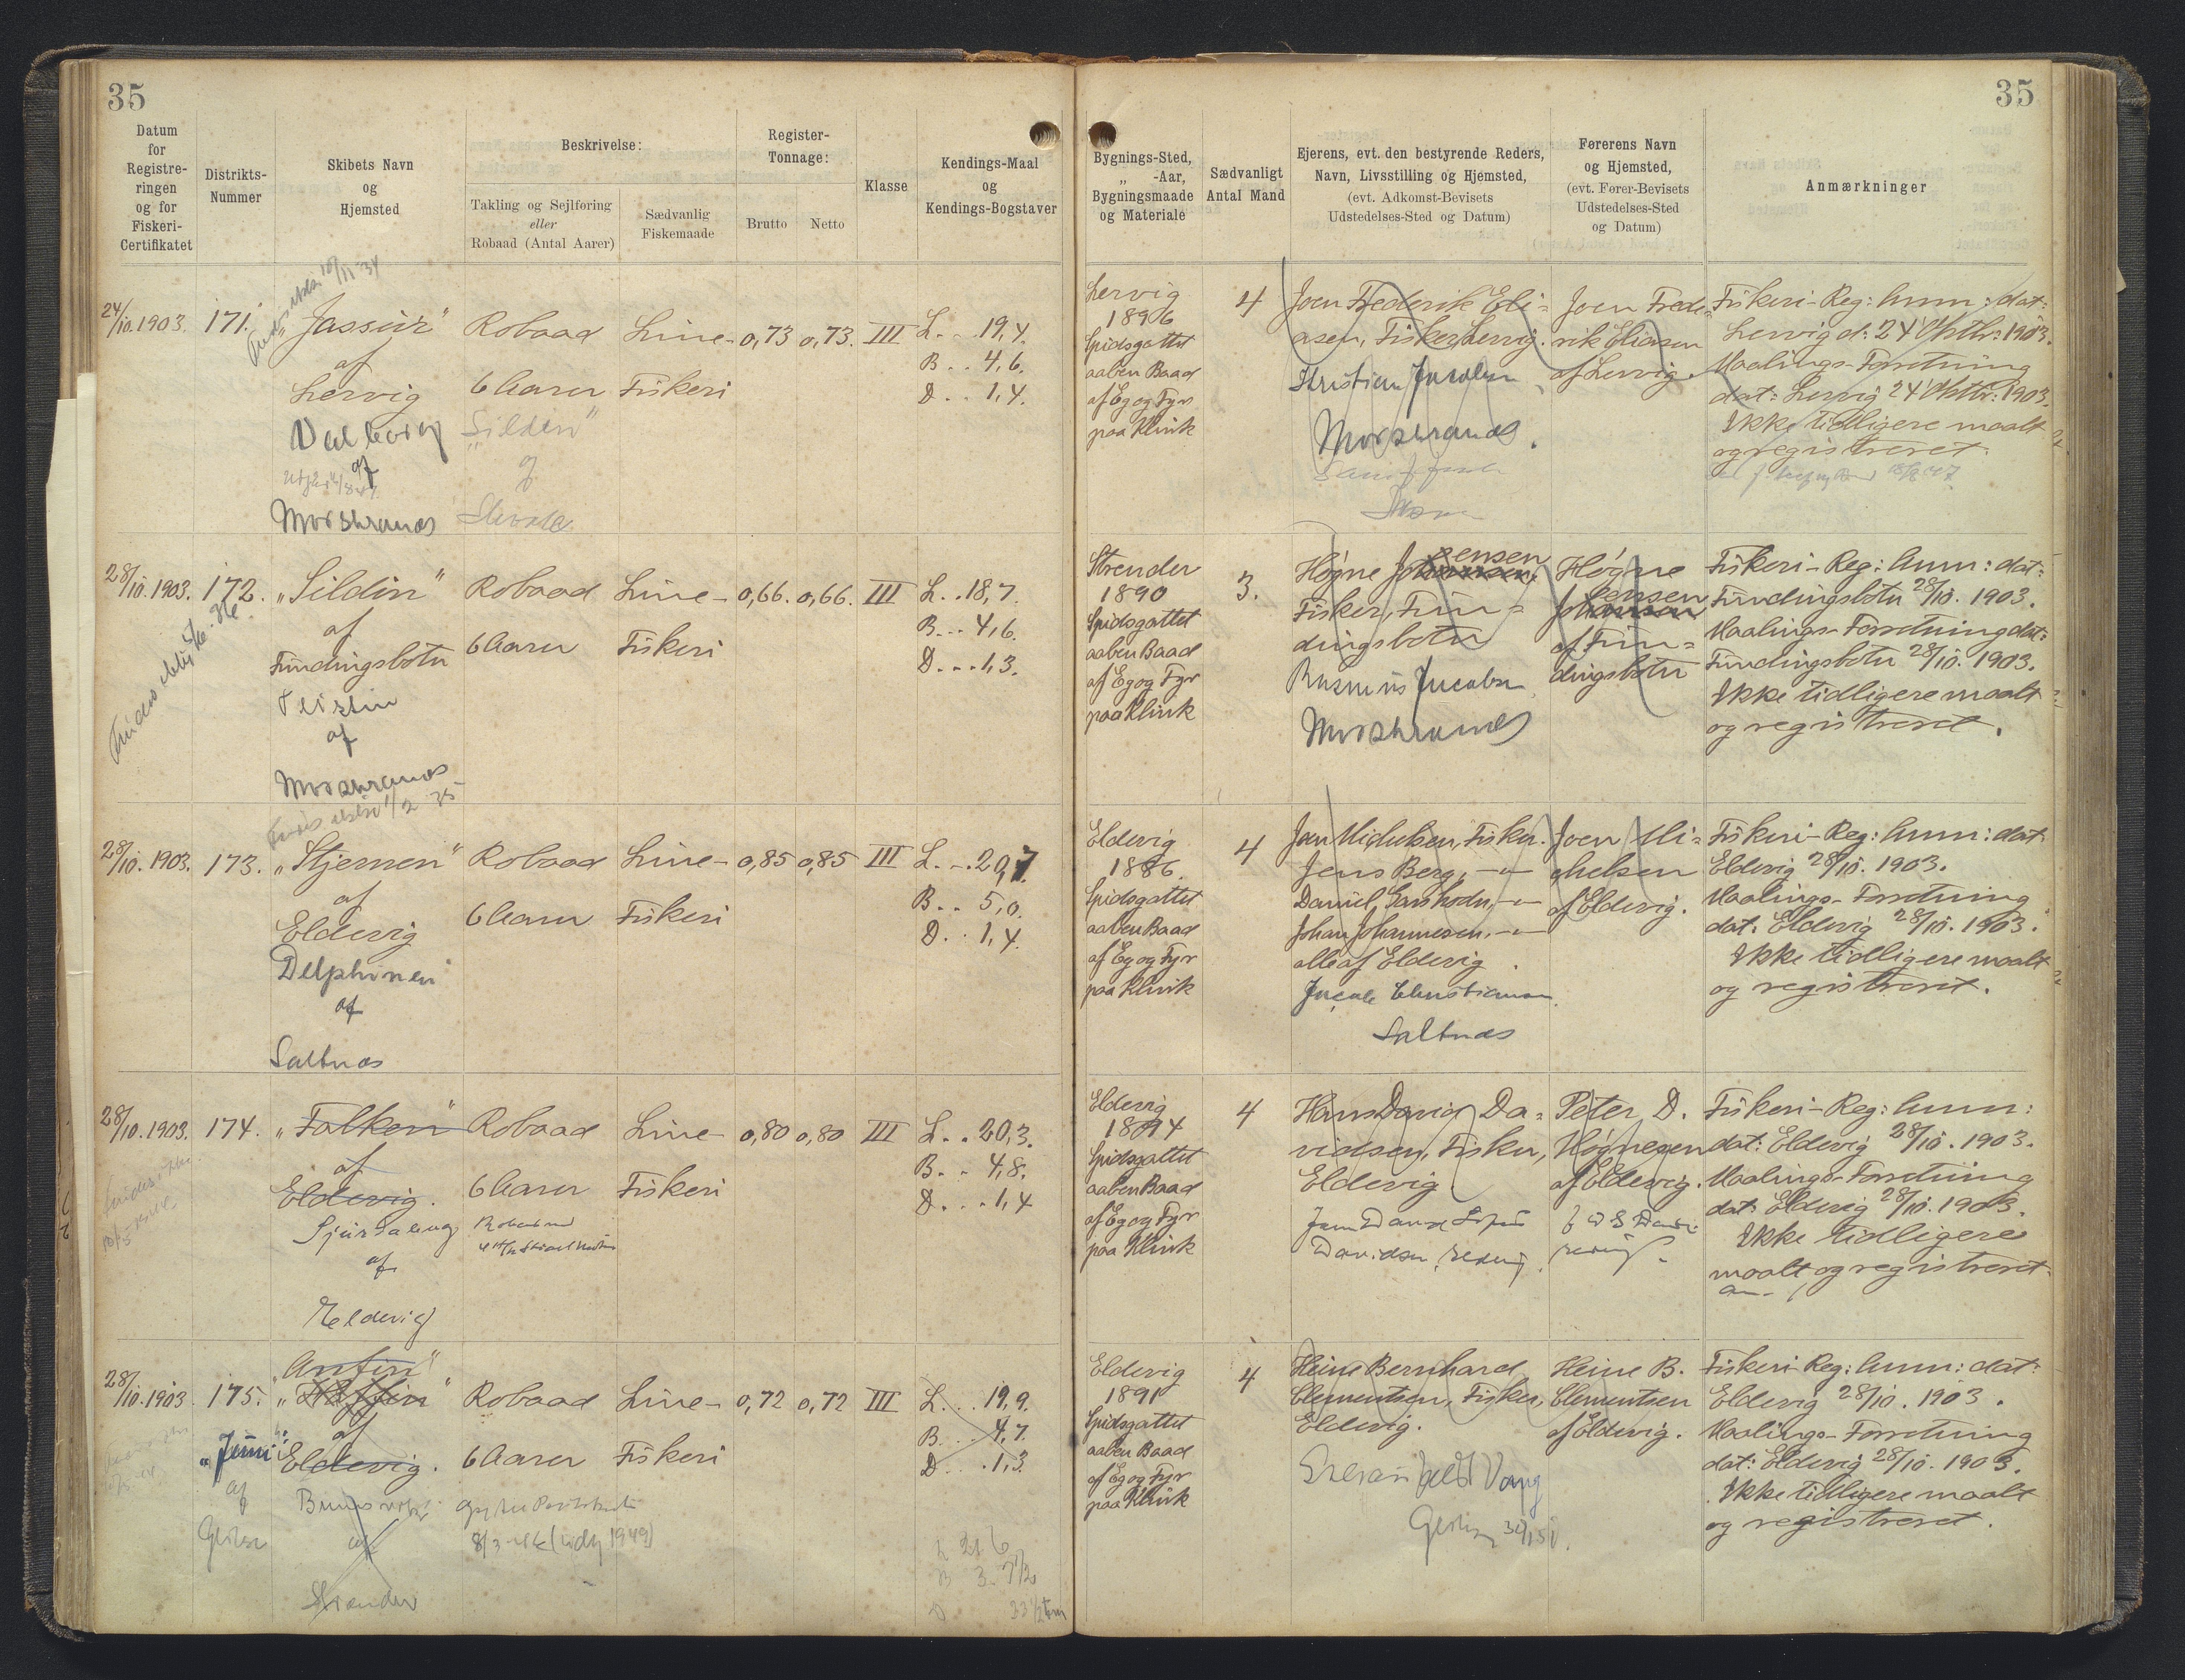 35
35
Datum
for
Registre-
ringen
og for
Fiskeri-
Certifikatet
Distrikts-
Nummer
Skibets Navn
og
Hjemsted
Beskrivelse:
Takling og Sejlføring
eller
Robaad (Antal Aarer)
Sædvanlig
Fiskemaade
Register-
Tonnage:
Brutto
Netto
Klasse
Kendings-Maal
og
Kendings-Bogstaver
Bygnings-Sted,
„ -Aar,
Bygningsmaade
og Materiale
Sædvanligt
Antal Mand
Ejerens, evt. den bestyrende Reders,
Navn, Livsstilling og Hjemsted,
(evt. Adkomst-Bevisets
Udstedelses-Sted og Datum)
Førerens Navn
og Hjemsted,
(evt. Fører-Bevisets
Udstedelses-Sted
og Datum)
Anmærkninger
24/10.1903.
171.
„Jassur"
af
Lervig
af
Robaad
6 Aarer
„Sildin"
af
Line-
Fiskeri
0,73
0,73.
III
L. . .19,4.
B. . 4,6.
D. . 1,4.
Lervig
1896
Spidsgattet
aaben Baad
af Eg og Fyr
paa Klink
4
Joen Frederik Eli=
asen, Fisker, Lervig.
Joen Frede=
rik Eliasen
af Lervig.
Fiskeri-Reg: Anm: dat:
Lervig d: 24' Oktbr: 1903.
Maalings-Forretning
dat: Lervig 24' Oktbr: 1903.
Ikke tidligere maalt
og registreret.
28/10.1903.
172.
„Sildin"
af
Fundingsbotn
af
Robaad
6 Aarer
Line-
Fiskeri
0,66.
0,66.
III
L. . 18,7.
B. . . 4,6.
D. . . 1,3.
Strender
1890
Spidsgattet
aaben Baad
af Eg og Fyr
paa Klink
3.
ensen
Høgne Johannesen,
Fisker, Fun=
dingsbotn
Rasmus Jacobsen
Høgne
ensen
Johannesen
af Fun=
dingsbotn
Fiskeri-Reg: Anm: dat:
Fundingsbotn 28/10. 1903.
Maalings-Forretning dat:
Fundingsbotn 28/10. 1903.
Ikke tidligere maalt
og registreret.
28/10.1903.
173.
„Stjernen"
af
Eldevig
Delphinen
af
Saltnæs
Robaad
6 Aarer
Line-
Fiskeri
0,85
0,85
III
L. . . 20,7
B. . 5,0.
D. . 1,4.
Eldevig
1886.
Spidsgattet
aaben Baad
af Eg og Fyr
paa Klink
4
Joen Michelsen, Fisker.
Jens Berg, — „ —
Daniel Garshodn, — „ —
Johan Johannesen, — „ —
alle af Eldevig.
Jacob Christiansen
Saltnæs
Joen Mi=
chelsen
af Eldevig.
Fiskeri-Reg: Anm: dat:
Eldevig 28/10. 1903.
Maalings-Forretning
dat: Eldevig 28/10. 1903.
Ikke tidligere maalt
og registreret.
28/10.1903.
174.
„Falken"
af
Eldevig.
af
Eldevig
Robaad
6 Aarer
Line-
Fiskeri
0,80
0,80
III
L. . 20,3.
B. . 4,8.
D. . . 1,4
Eldevig
1894
Spidsgattet
aaben Baad
af Eg og Fyr
paa Klink
4
Hans David Da=
vidsen, Fisker,
Eldevig
Peter D.
Høgnesen
af Eldevig.
Fiskeri-Reg: Anm:
dat: Eldevig 28/10. 1903.
Maalings-Forretning
dat: Eldevig 28/10. 1903.
Ikke tidligere
maalt og registreret.
28/10.1903
175.
„Anfin"
af
Eldevig.
„Jenni"
af
af
Strender
Robaad
6 Aarer
Line-
Fiskeri
0,72
0,72
III
L. . . 19,9.
B. . . 4,7.
D. . . 1,3.
L 21 6
Eldevig
1891
Spidsgattet
aaben Baad
af Eg og Fyr
paa Klink
4
Heine Bernhard
Clementsen, Fisker,
Eldevig.
Heine B.
Clementsen
af Eldevig.
Fiskeri-Reg: Anm: dat:
Eldevig 28/10. 1903.
Maalings-Forretning
dat: Eldevig 28/10. 1903.
Ikke tidligere maalt
og registreret.